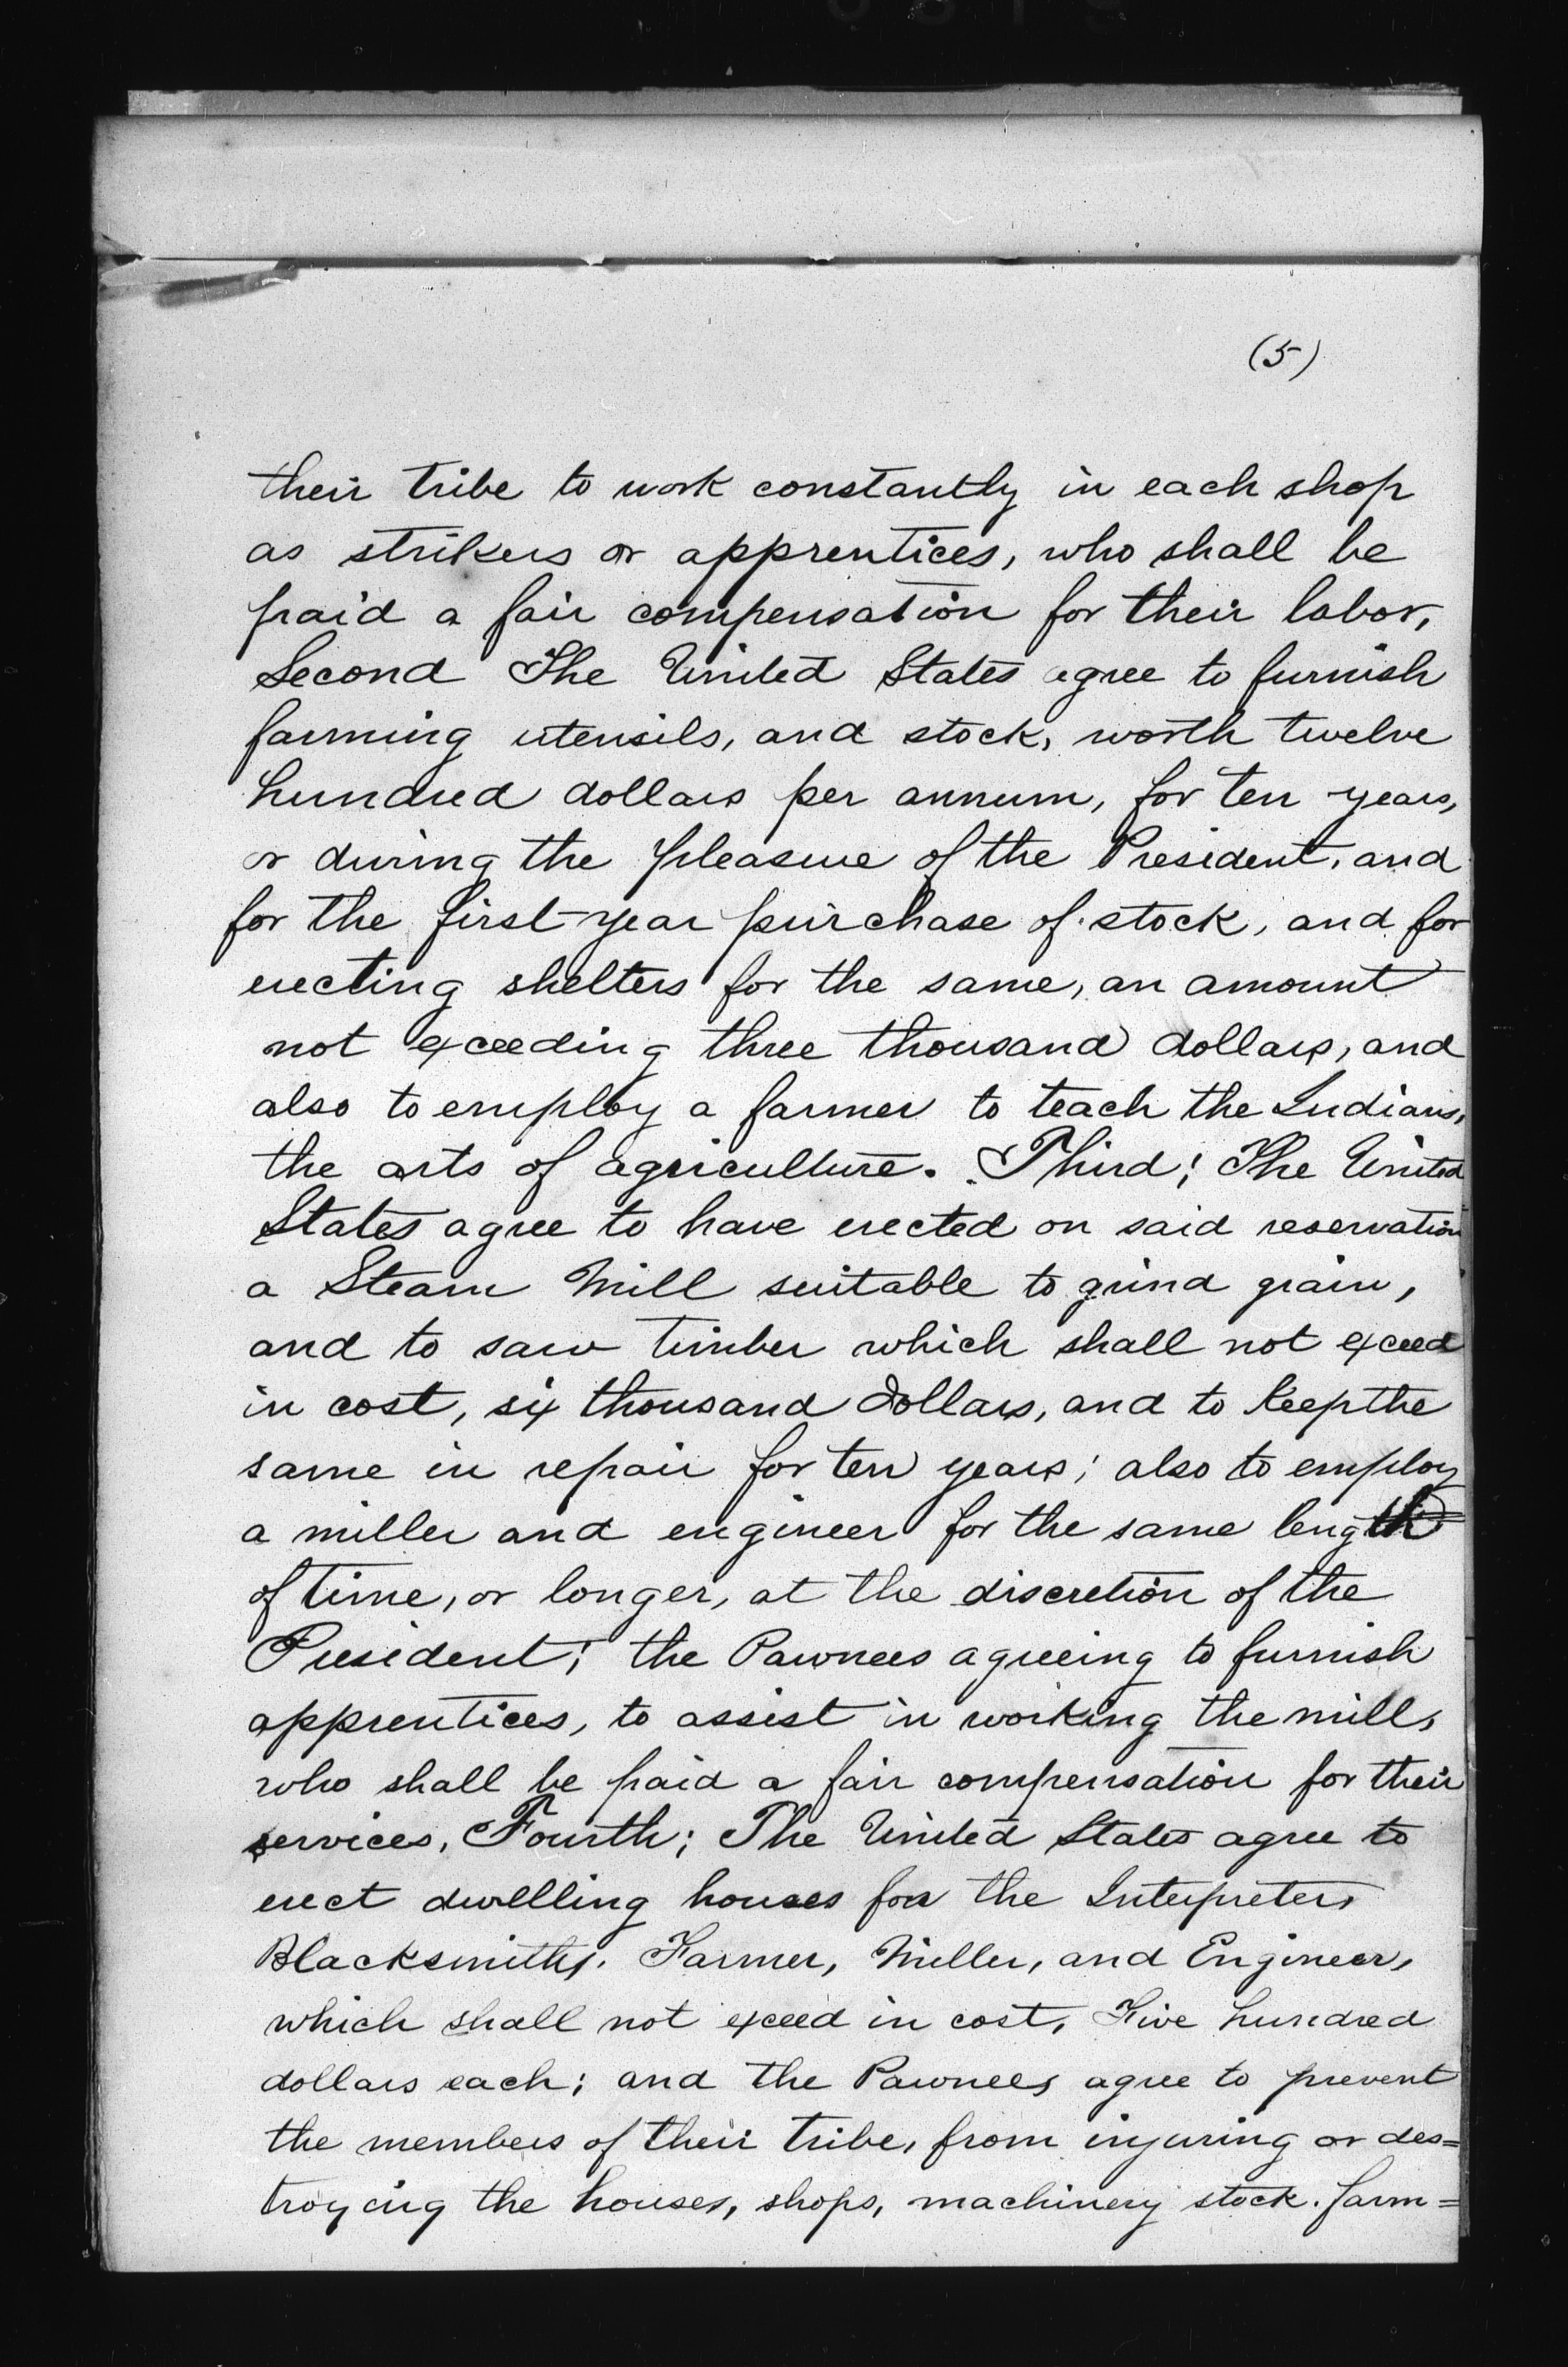 (5)
their tribe to work constantly in each shop
as strikers or apprentices, who shall be
paid a fair compensation for their labor,
Second The United States agree to furnish
farming utensils, and stock, worth twelve
hundred dollars per annum, for ten years,
or during the pleasure of the President, and
for the first year purchase of stock, and for
erecting shelters for the same, an amount
not exceeding three thousand dollars, and
also to employ a farmer to teach the Indians,
the arts of agriculture. Third; The United
States agree to have erected on said reservation
a Steam Mill suitable to grind grain,
and to saw timber which shall not exceed
in cost, six thousand dollars, and to keep the
same in repair for ten years; also to employ
a miller and engineer for the same length
of time, or longer, at the discretion of the
President; the Pawnees agreeing to furnish
apprentices, to assist in working the mill,
who shall be paid a fair compensation for their
services. Fourth; The United States agree to
erect dwelling houses for the Interpreter,
Blacksmiths, Farmer, Miller, and Engineer,
which shall not exceed in cost, Five hundred
dollars each; and the Pawnees agree to prevent
the members of their tribe, from injuring or des=
troying the houses, shops, machinery stock. farm=